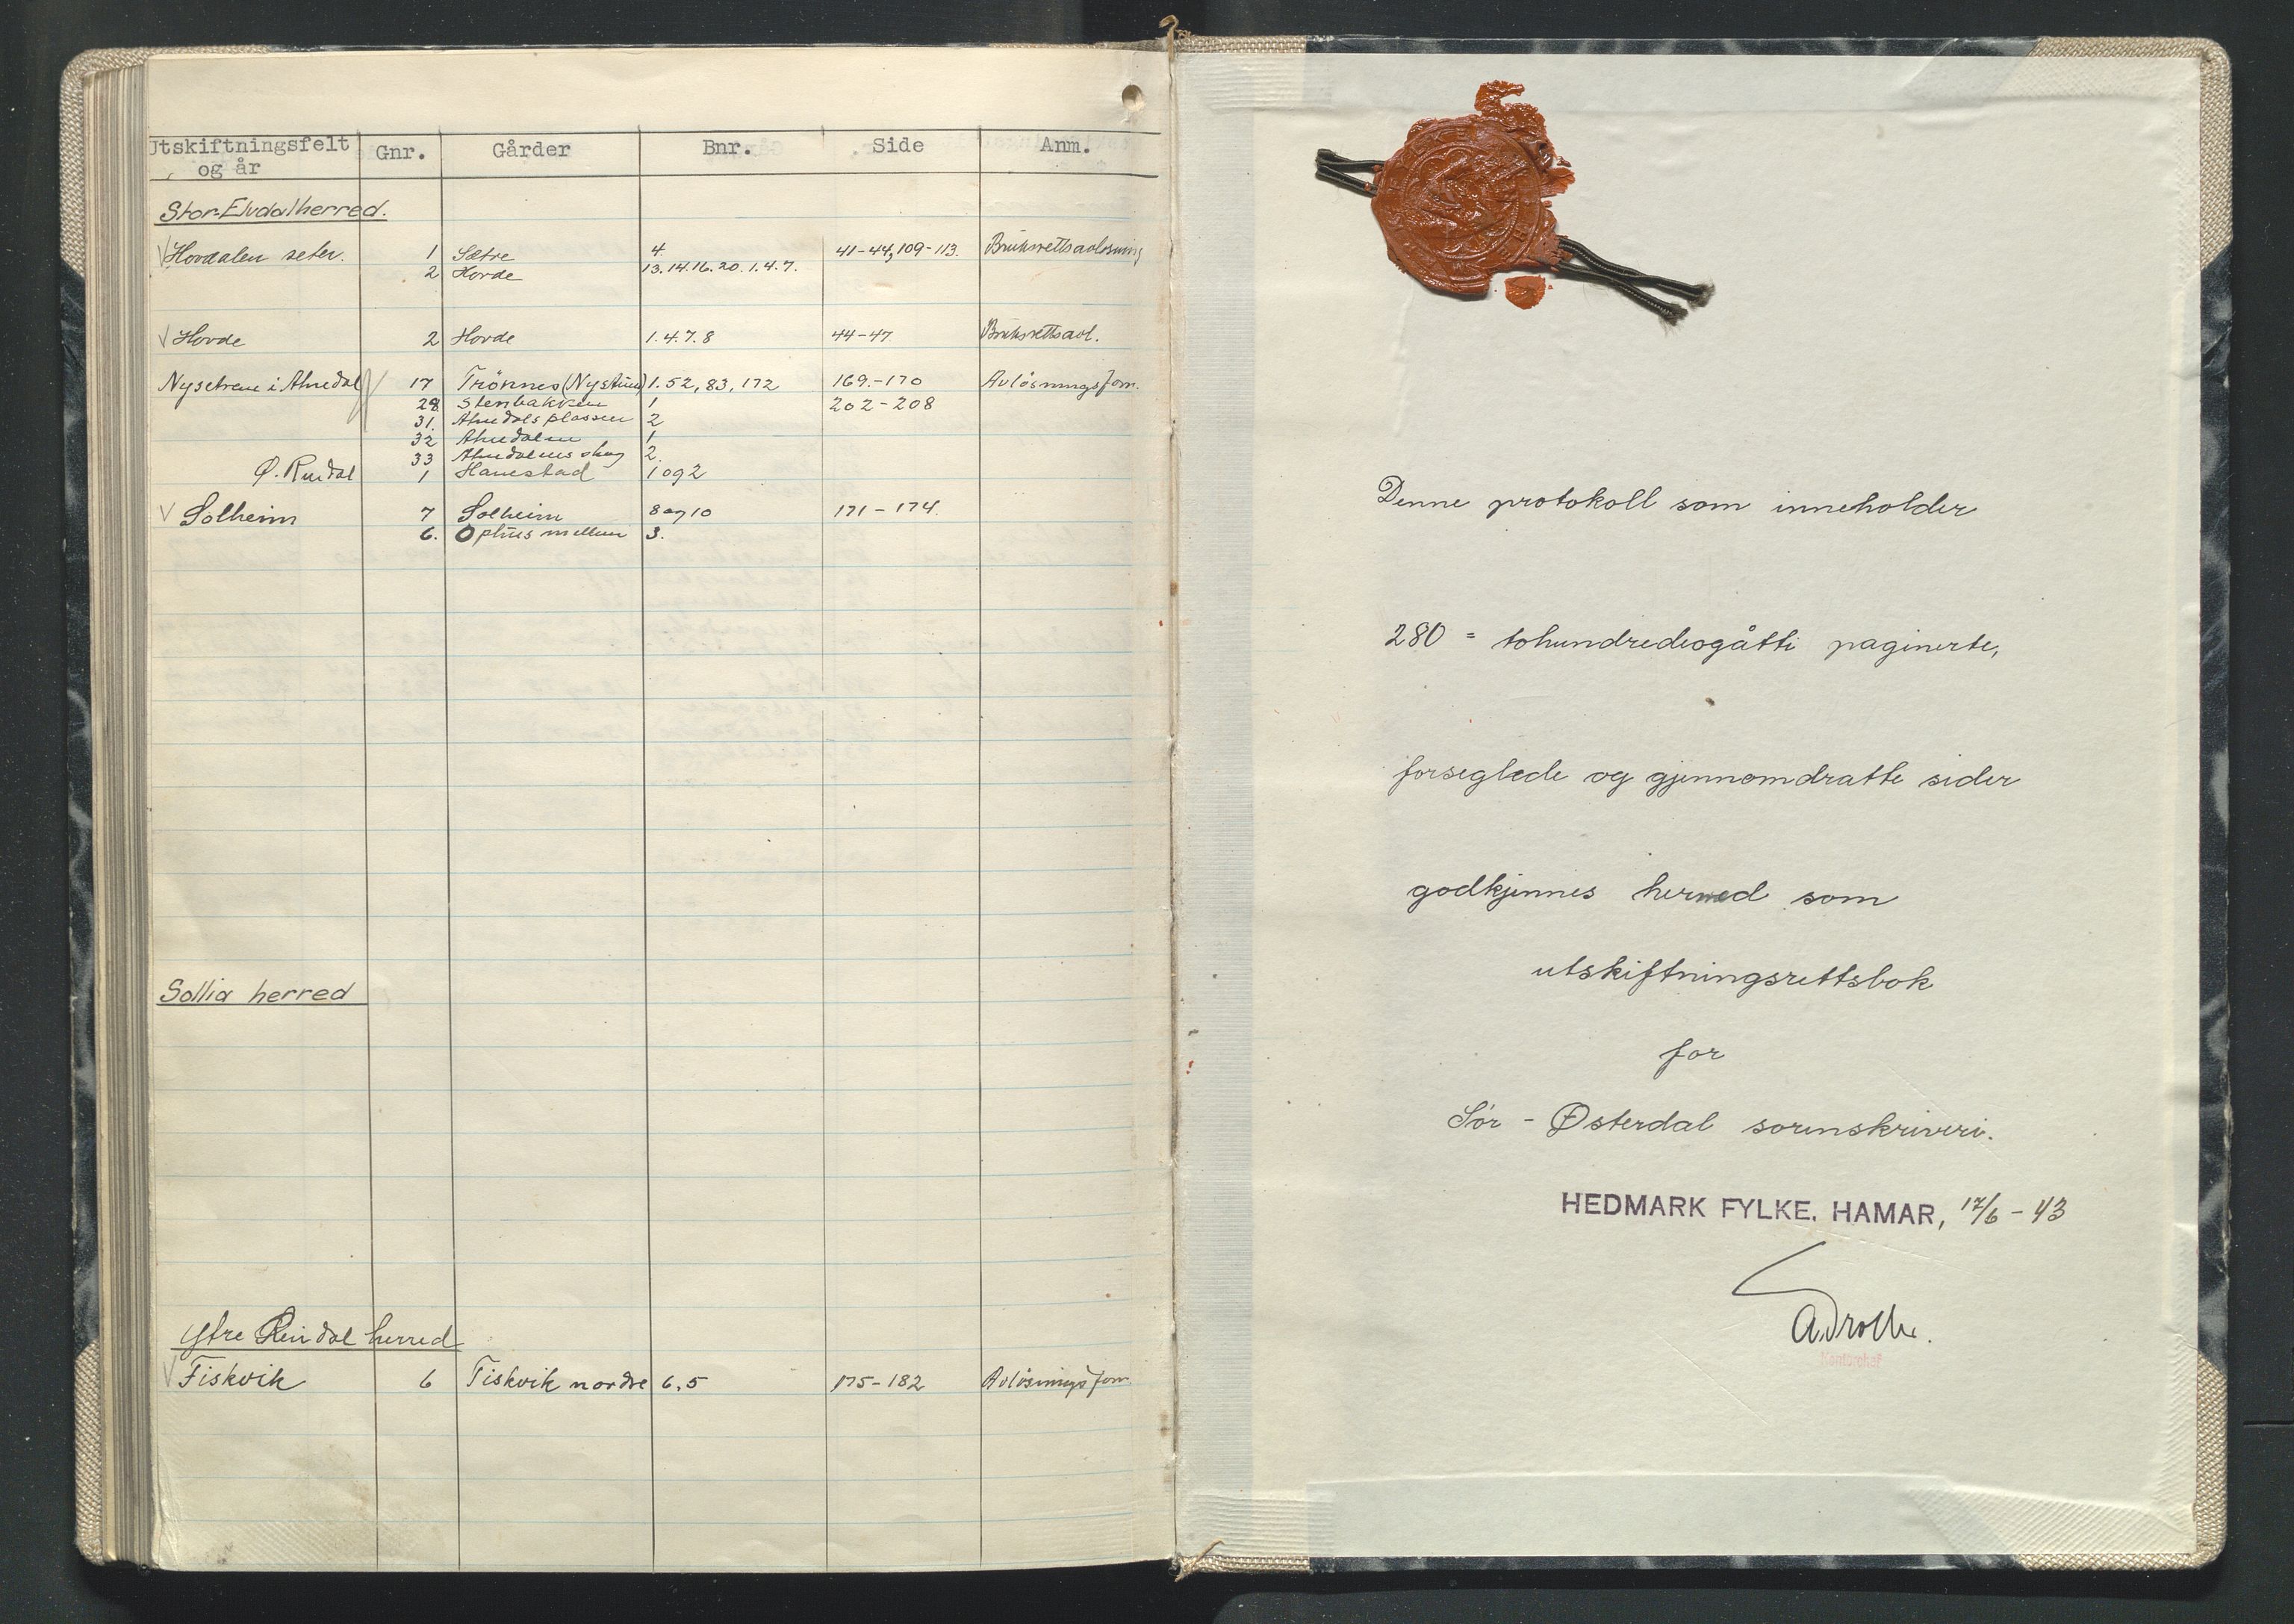 Utskiftningsfelt og år | Gnr. | Gårder | Bnr. | Side | Anm.
Stor-Elvdal herred.
Hovdalen seter. | 1 | Sætre | 4. | 41-44, 109-113. | Bruksrettsavløsning
2 | Hovde | 13. 14. 16. 20. 1. 4. 7.
Hovde | 2 | Hovde | 1. 4. 7. 8 | 44-47 | Bruksrettsavl.
Nysetrene i Atnedal | 17 | Trönnes (Nystuen) | 1. 52, 83, 172 | 169.-170 | Avlösningsforr.
29 | Stenbakken | 1 | 202-208
31. | Atnedalsplassen | 2
32 | Atnedalen | 1
33 | Atnedalens skog | 2.
Ø. Rendal | 1 | Hanestad | 1 og 2
Solheim | 7 | Solheim | 8 og 10 | 171-174.
6. | Ophus mellem | 3.
Sollia herred
Ytre Rendal herred
Fiskvik | 6 | Fiskvik nordre | 6, 5 | 175-182 | Avlösningsforr.
Denne protokoll som inneholder
280 = tohundredeogåtti paginerte,
forseglede og gjennomdratte sider
godkjennes herved som
utskiftningsrettsbok
for
Sør - Østerdal sorenskriveri.
HEDMARK FYLKE. HAMAR, 17/6 - 43
Kontorchef